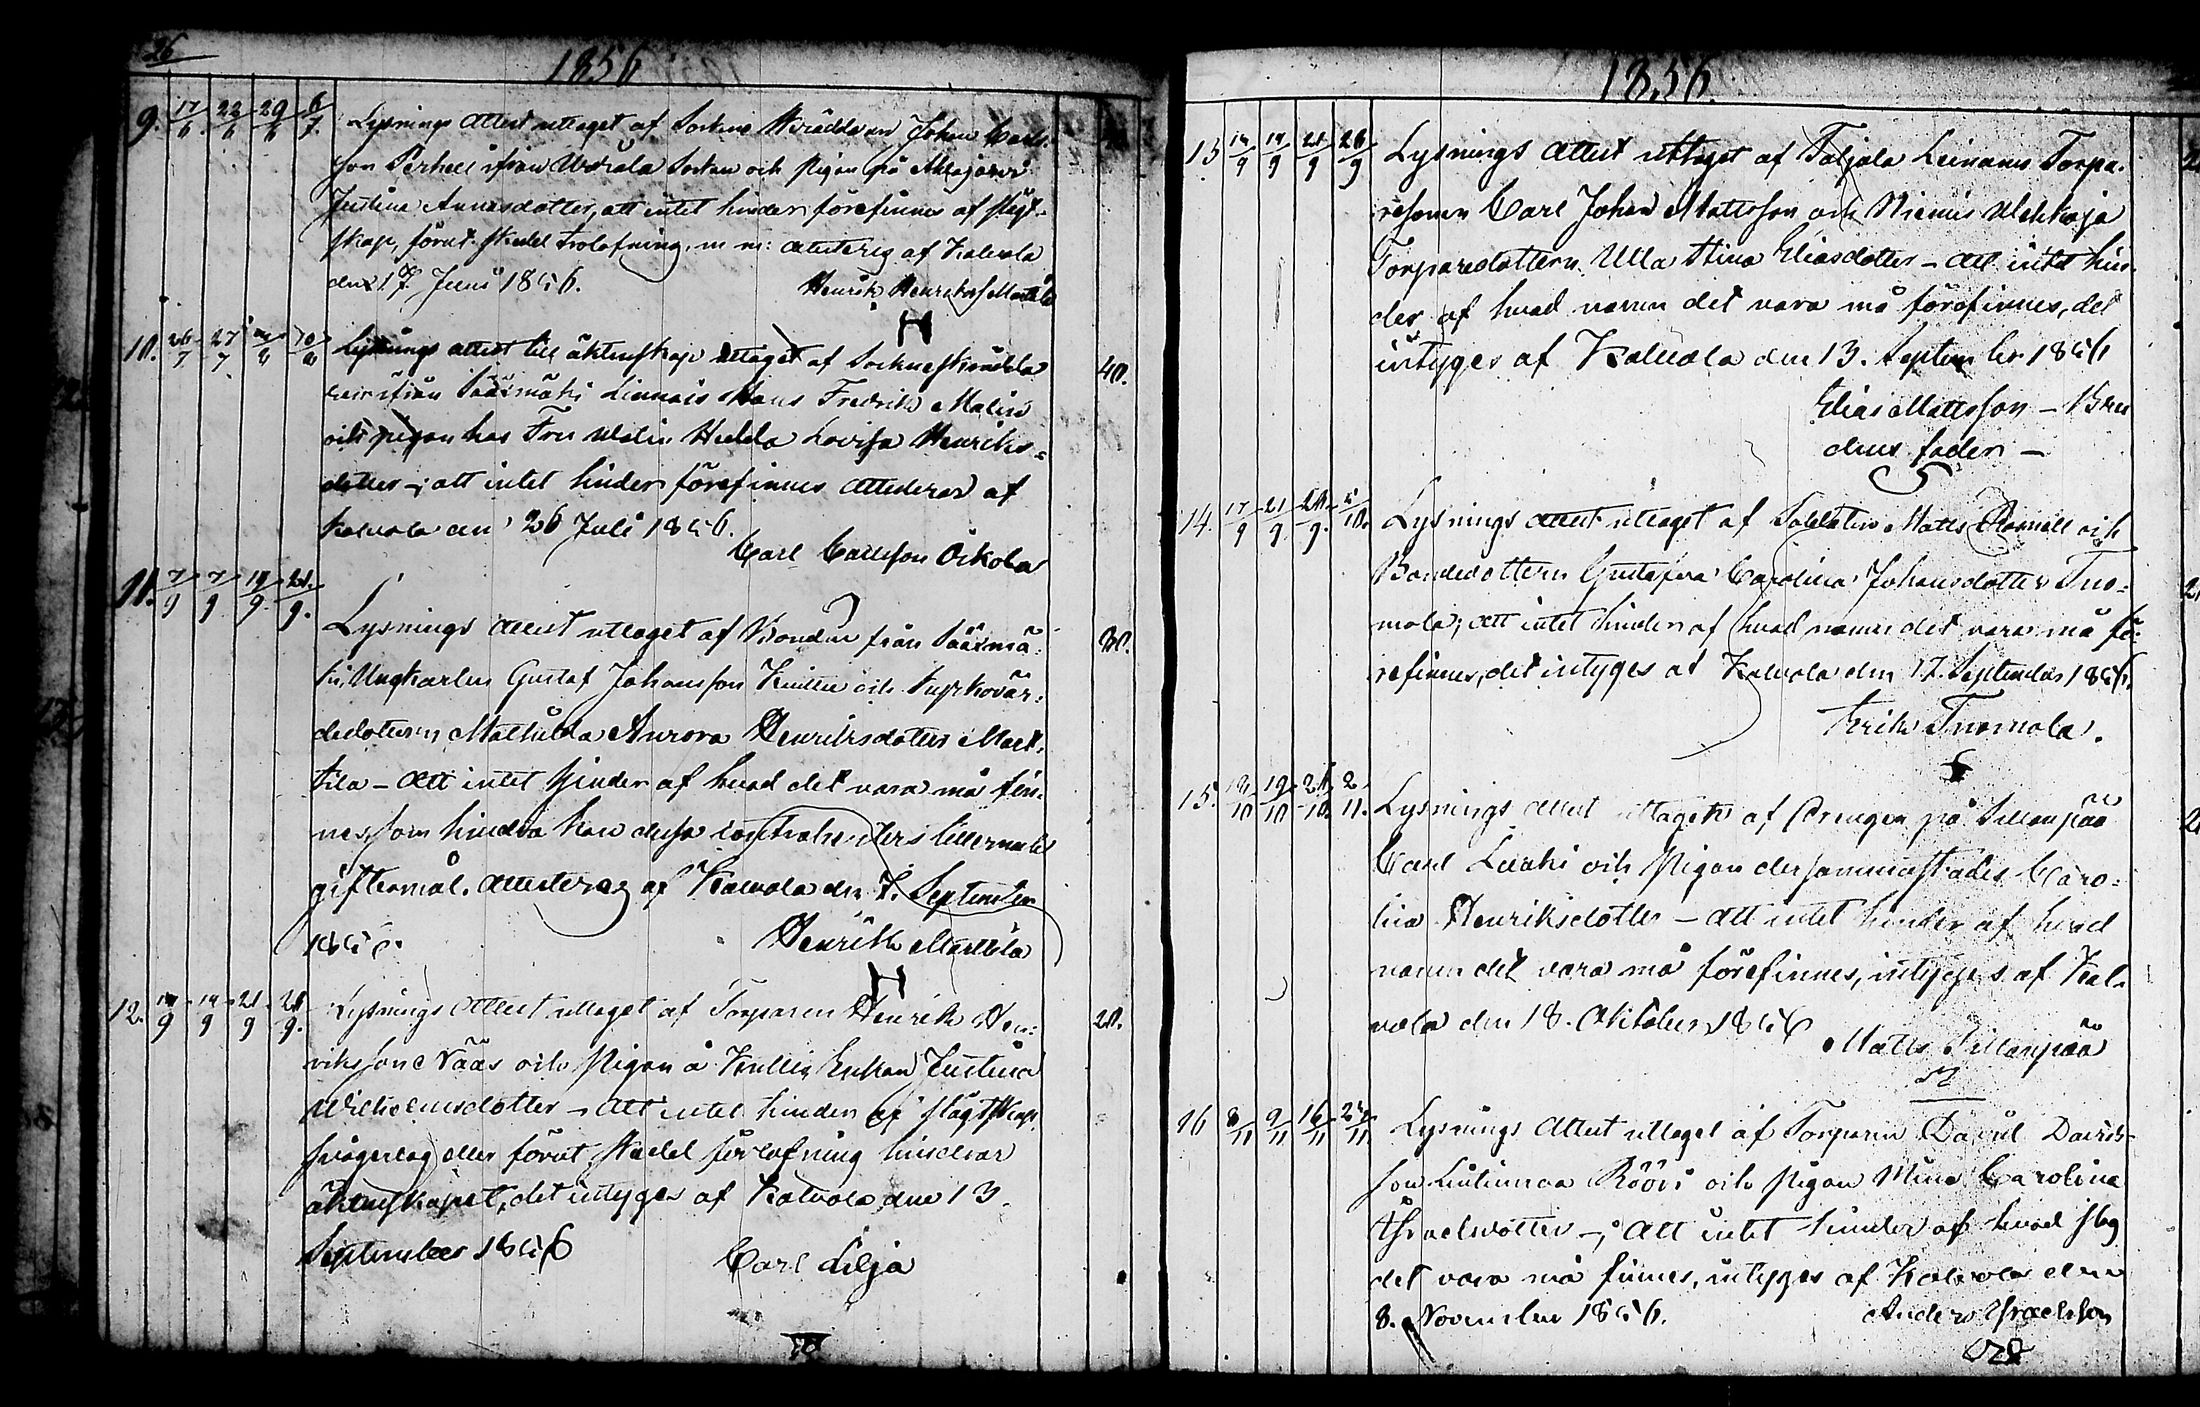 26
1856
9. 17/6 22/6 29/6 6/7. Lysnings Attest uttaget af Sockne Skräddaren Johan Carls
son Perhell ifrån Urdiala Socken och pigan på Ahlajärvi
Justina Annasdotter, att intet hinder förefinnes af slägt-
skap, förut skedd trolofning, m m: attesteras af Kalvola
den 17 Juni 1856. Henrik Henriksson Marttila
H
10. 26/7 27/7 10/8 Lysnings attest till äktenskap uttaget af Sockneskrädda
ren ifrån Sääxmäki Linnais Hans Fredrik Malin
och pigan hos Fru Malin Hedda Lovisa Henriks-
dotter -; att intet hinder förefinnes attesteras af 40.
Kalvola den 26 Juli 1856.
Carl Carlsson Öikola
11. 7/9 7/9 14/9 21/9. Lysnings Attest uttaget af Bonden från Sääxmä-
ki, Ungkarlen Gustaf Johansson och kyrkovär- 30.
dedottern Mathilda Aurora Henriksdotter Mart-
tila - Att intet hinder af hvad det vara må fin-
nes, som hindra kan dessa contrahenters tillernade
giftermål. Attesteras af Kalvola den 7. September
1856. Henrik Marttila
H
12. 14/9 14/9 21/9 28/9. Lysnings Attest uttaget af Torparen Henrik Hen- 20.
riksson Nääs och Pigan å Enkan Justina
Wilhelmsdotter - Att intet hinder af Slägtskap,
svågerlag eller förut skedd förlofning hindrar
äktenskapet, det intyges af Kalvola den 13.
September 1856
Carl Lilja
1856.
13 14/9 14/9 21/9 28/9 Lysnings Attest uttaget af Taljala Leinamo Torpa-
resonen Carl Johan Mattsson och Niemis
Torparedottern Ulla Stina Eliasdotter - Att intet hin-
der af hvad namn det vara må förefinnes, det
intyges af Kalvola den 13. September 1856
Elias Mattsson - Bru
dens fader -
14. 17/9 21/9 28/9. 5/10. Lysnings Attest uttaget af Soldaten Matts och
Bondedottern Gustafva Carolina Johansdotter Tuo-
mola; att intet hinder af hvad namn det vara må fö-
refinnes, det intyges af Kalvola den 17. September 1856.
Erik Tuomola.
15. 18/10 19/10 26/10. 2/11. Lysnings Attest uttaget af Drengen på Sillanpää
Carl Luuki och Pigan dersammastädes Caro-
lina Henriksdotter - Att intet hinder af hvad
namn det vara må förefinnes, intyges af Kal-
vola den 18. Oktober 1856
Matts Sillanpää
16 8/11 9/11 16/11 23/11 Lysnings Attest uttaget af Torparen David Davids-
son Liutimaa Rööri och pigan Mina Carolina
Israelsdotter -; Att intet hinder af hvad slag
det vara må finnes, intyges af Kalvola den
8. November 1856. Anders Israelsson